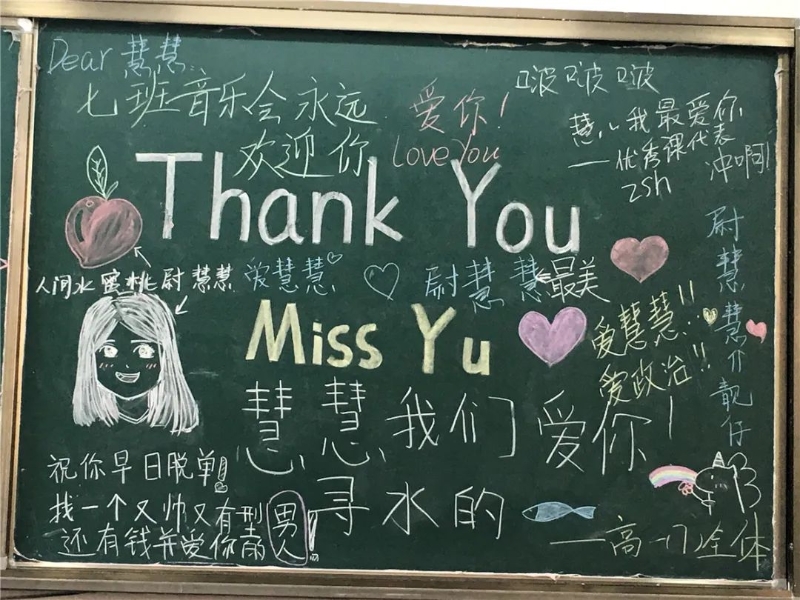 Dear 慧慧
七班音乐会永远
欢迎你
爱你！
Love You
啵啵啵
慧儿我最爱你
—优秀课代表
zsh
冲啊！
Thank You
人间水蜜桃尉慧慧
爱慧慧
尉慧慧最美
尉慧慧介靓仔
Miss Yu
爱慧慧！！
爱政治！！
慧慧我们爱你！
寻水的
祝你早日脱单！
找一个又帅又有型
还有钱并爱你的男人！
—高一(7)全体